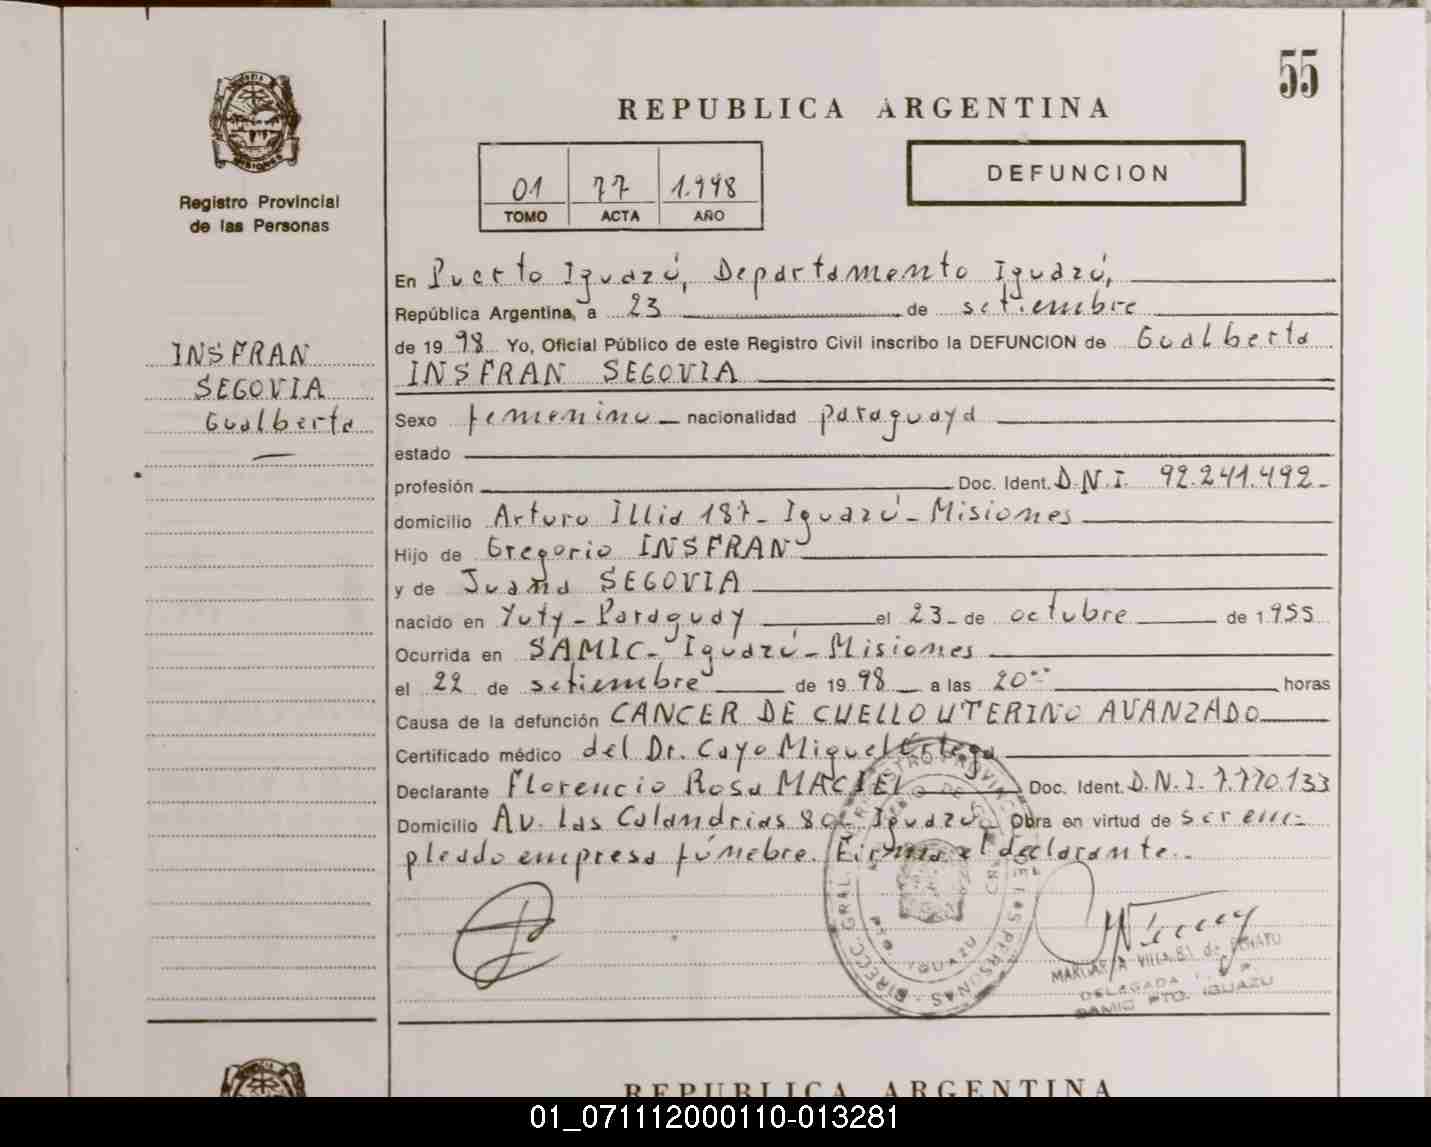 55
REPUBLICA ARGENTINA
01 77 1.998
TOMO ACTA AÑO
DEFUNCION
Registro Provincial
de las Personas
INSFRAN
SEGOVIA
Gualberta
En Puerto Iguazú, Departamento Iguazú,
República Argentina, a 23 de setiembre
de 19 98 Yo, Oficial Público de este Registro Civil inscribo la DEFUNCION de Gualberta
INSFRAN SEGOVIA
Sexo femenino nacionalidad paraguaya
estado
profesión Doc. Ident. D.N.I. 92.241.492-
domicilio Arturo Illia 187- Iguazú- Misiones
Hijo de Gregorio INSFRAN
y de Juana SEGOVIA
nacido en Yuty- Paraguay el 23- de octubre de 1955
Ocurrida en SAMIC- Iguazú- Misiones
el 22 de setiembre de 19 98 a las 20 horas
Causa de la defunción CANCER DE CUELLO UTERINO AVANZADO
Certificado médico del Dr. Cayo Miguel Ortega
Declarante Florencio Rosa MACIEL Doc. Ident. D.N.I. 7.770.133
Domicilio Av. Las Calandrias Iguazú, Obra en virtud de ser em-
pleado empresa fúnebre. Firma el declarante.
DIRECC. GRAL. REGISTRO PROVINCIAL DE LAS PERSONAS
PTO. IGUAZU
MARGARITA de
DELEGADA
SAMIC PTO. IGUAZU
REPUBLICA ARGENTINA
01_071112000110-013281